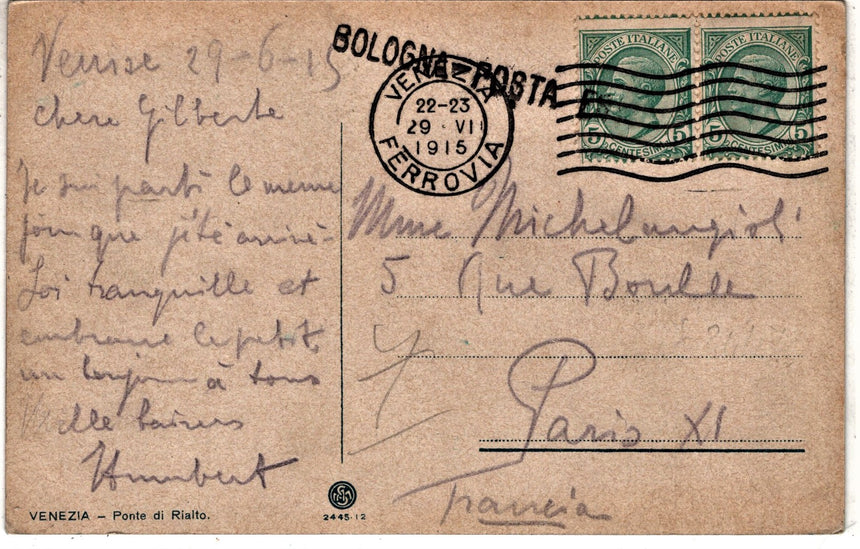 Venise 29-6-15
chere Gilberte
Je sui parti le meme
jour que j'été arrivé-
Soi tranquille et
embrasse le petit
un bonjour à tous
Mille baisers
Humbert
VENEZIA – Ponte di Rialto.
BOLOGNA POSTA ES
VENEZIA
22-23
29 · VI
1915
FERROVIA
POSTE ITALIANE
5 CENTESIMI 5
POSTE ITALIANE
5 CENTESIMI 5
Mme Michelangioli
5 Rue Boulle
Paris XI
Francia
2445-12